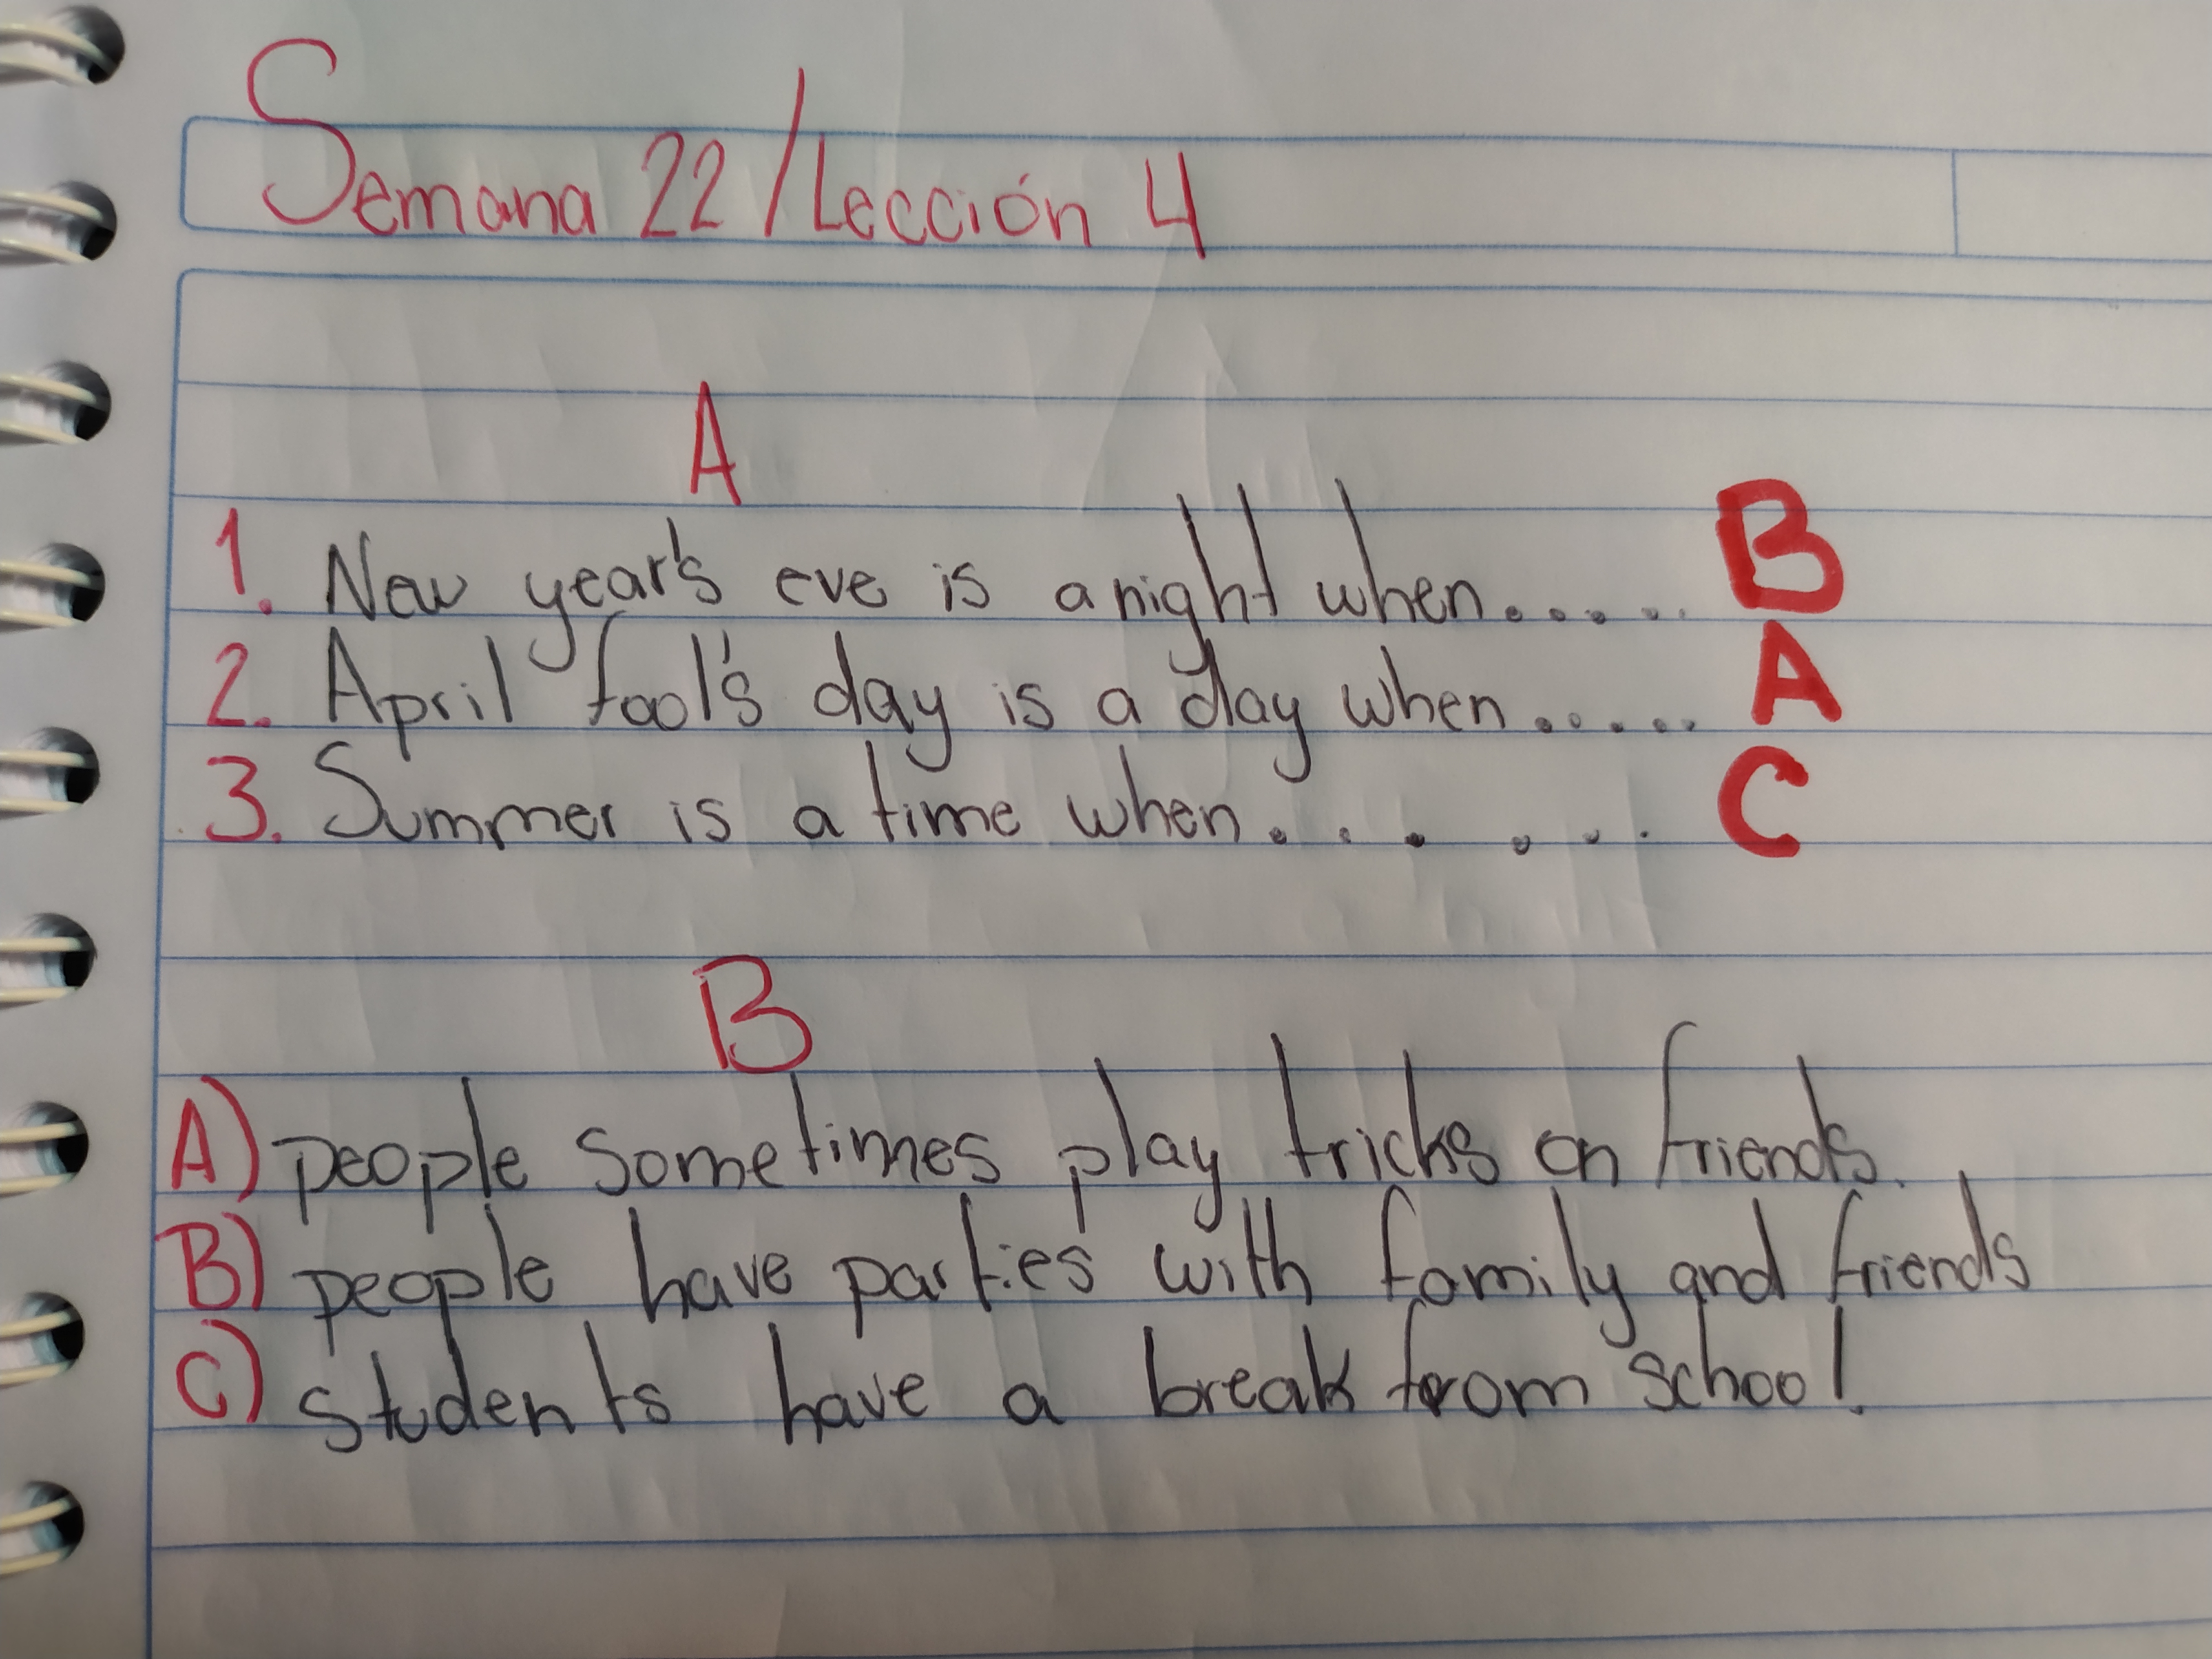 Semana 22/Lección 4
A
1. New year's eve is a night when..... B
2. April fool's day is a day when..... A
3. Summer is a time when...... C
B
A) people sometimes play tricks on friends.
B) people have parties with family and friends
C) students have a break from school.